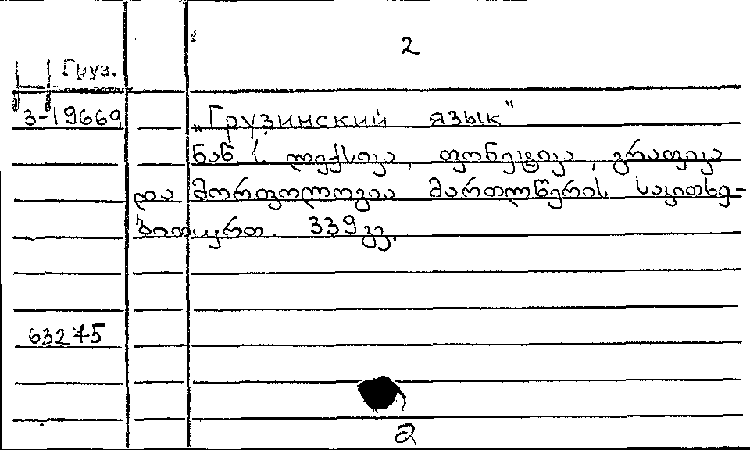 2
Груз.
3-19669
„Грузинский язык"
ნაწ I ლექსიკა, ფონეტიკა, გრაფიკა
და მორფოლოგია მართლწერის საკითხე-
ბითურთ. 339 გვ.
63275
2